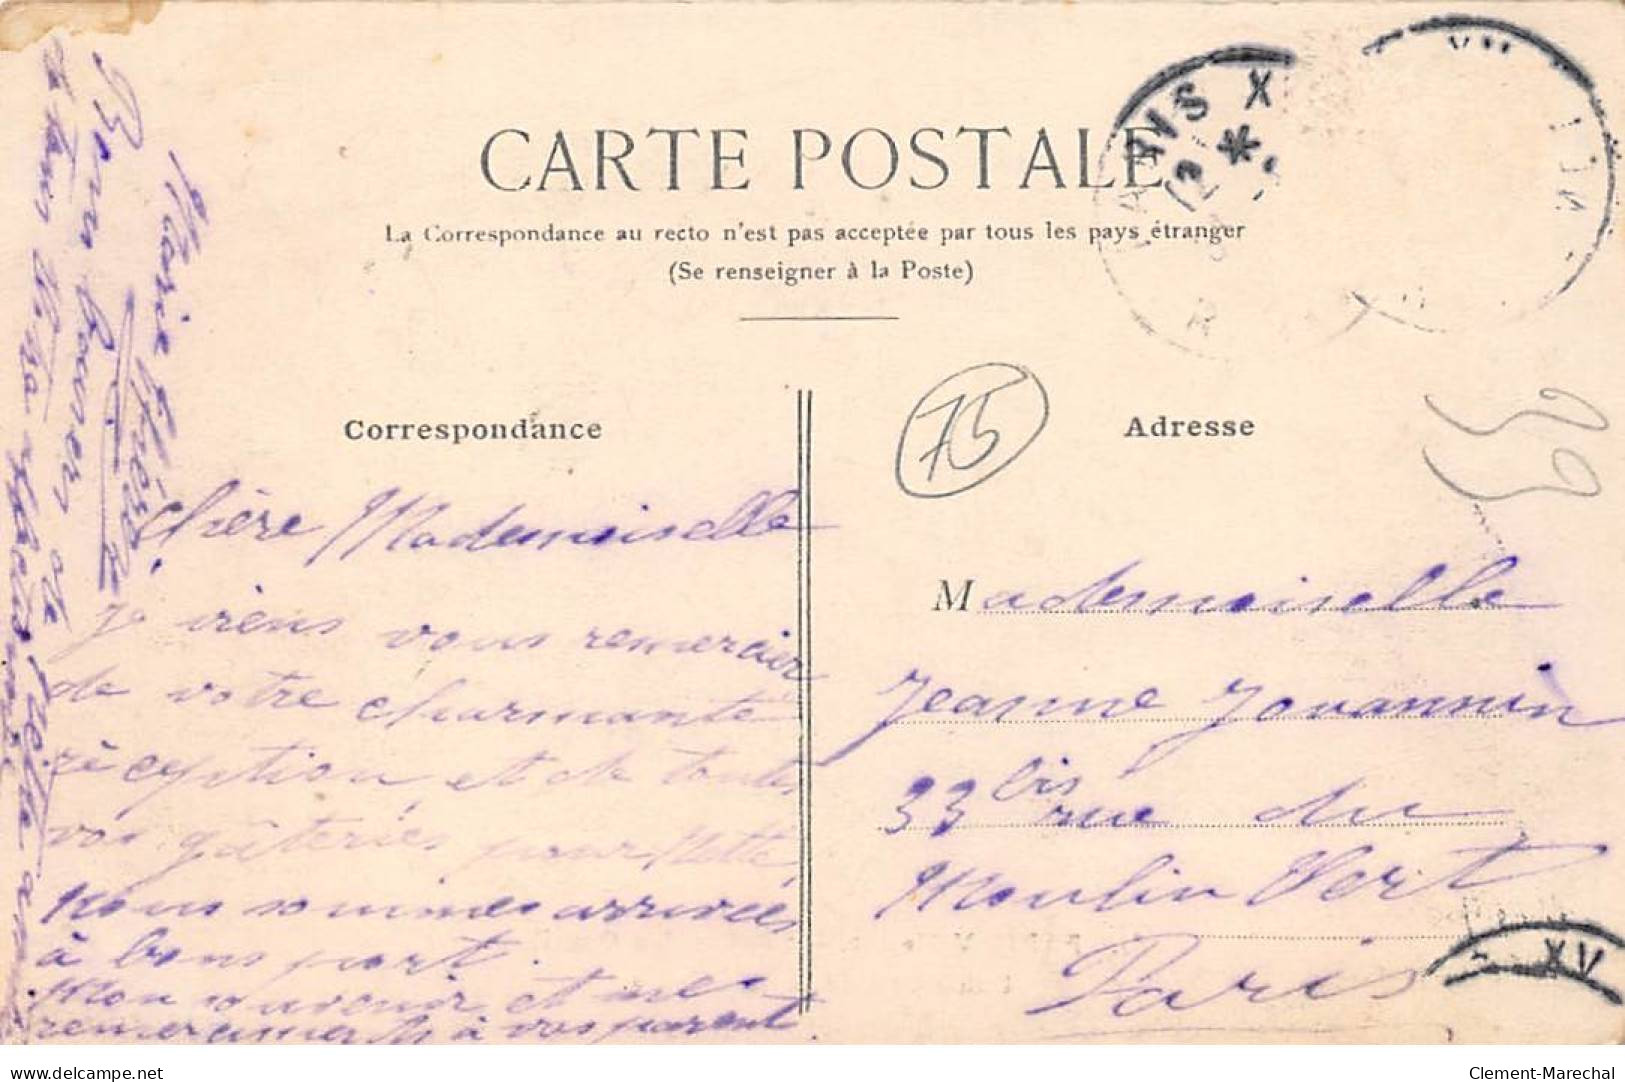 CARTE POSTALE
La Correspondance au recto n'est pas acceptée par tous les pays étranger
(Se renseigner à la Poste)
Correspondance
Adresse
75
Chère Mademoiselle
je viens vous remercier
de votre charmante
réception et de toutes
vos gâteries pour
Nous sommes arrivées
à bons port.
Mon souvenir et mes
remerciements à vos parent.
Bons baisers de
Mademoiselle
Jeanne Jouannin
33 bis rue du
Moulin Vert
Paris
PARIS X
XV
delcampe.net
Clement-Marechal